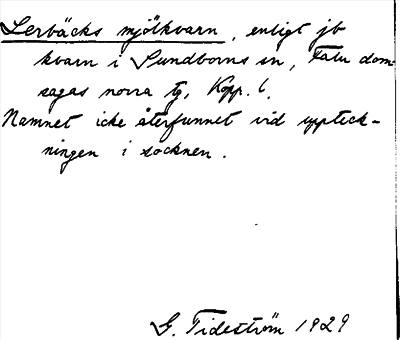 Lerbäcks mjölkvarn, enligt jb
kvarn i Sundborns sn, Falu dom-
sagas norra tg, Kopp. l.
Namnet icke återfunnet vid uppteck-
ningen i socknen.
G. Tideström 1929